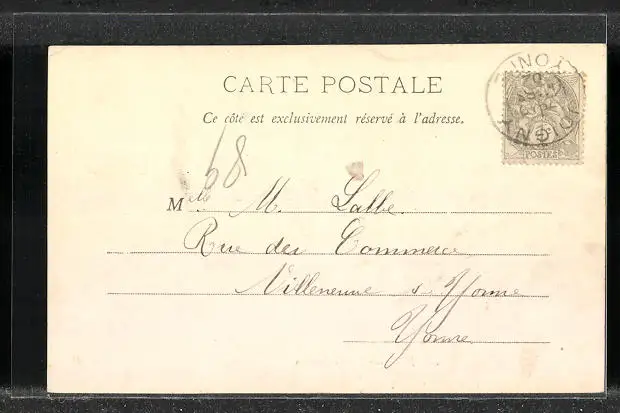 CARTE POSTALE
Ce côté est exclusivement réservé à l'adresse.
68
Mlle M. Lalle.
Rue du Commerce
Villeneuve s. Yonne
Yonne
JOIGNY
YONNE
POSTES